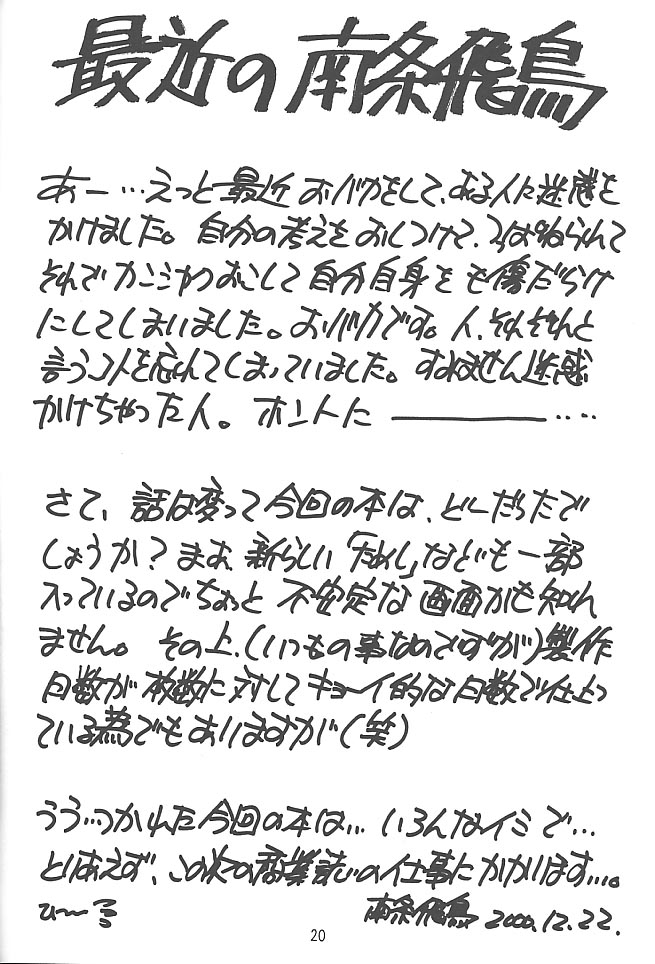 最近の南条飛鳥
あー…えっと最近おバカをして、ある人に迷惑を
かけました。自分の考えをおしつけて、つっぱねられて
それでカンシャクおこして自分自身をも傷だらけ
にしてしまいました。おバカです。人、それぞれと
言うコトを忘れてしまっていました。すみません迷惑
かけちゃった人。ホントに――――‥‥
さて、話は変って今回の本は、どーだったで
しょうか？まあ、新らしい「ためし」なども一部
入っているのでちょっと不安定な画面かも知れ
ません。その上、（いつもの事なのですが）製作
日数が枚数に対してキョーイ的な日数で仕上っ
ている為でもありますが（笑）
うう…つかれた今回の本は…いろんなイミで…
とりあえず、この次の商業誌の仕事にかかります…。
ひ〜る
南条飛鳥 2000.12.22.
20